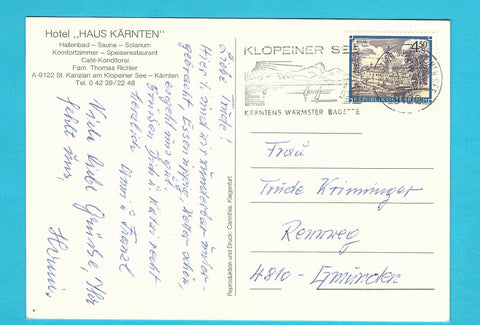 Hotel „HAUS KÄRNTEN"
Hallenbad – Sauna – Solarium
Komfortzimmer – Speiserestaurant
Café-Konditorei
Fam. Thomas Richler
A-9122 St. Kanzian am Klopeiner See – Kärnten
Tel. 0 42 39/22 48
Liebe Trude!
Hier sind wir wunderbar unter-
gebracht. Essen üppig, Wetter schön,
es geht uns gut.
Grüßen Dich u. Karli recht
herzlich
Viele liebe Grüße, Ihr
fehlt uns,
Hermi
Reproduktion und Druck: Carinthia, Klagenfurt
KLOPEINER SEE
KÄRNTENS WÄRMSTER BADESEE
4.50
REPUBLIK ÖSTERREICH
Frau
Trude Krimminger
Rennweg
4810 - Gmunden